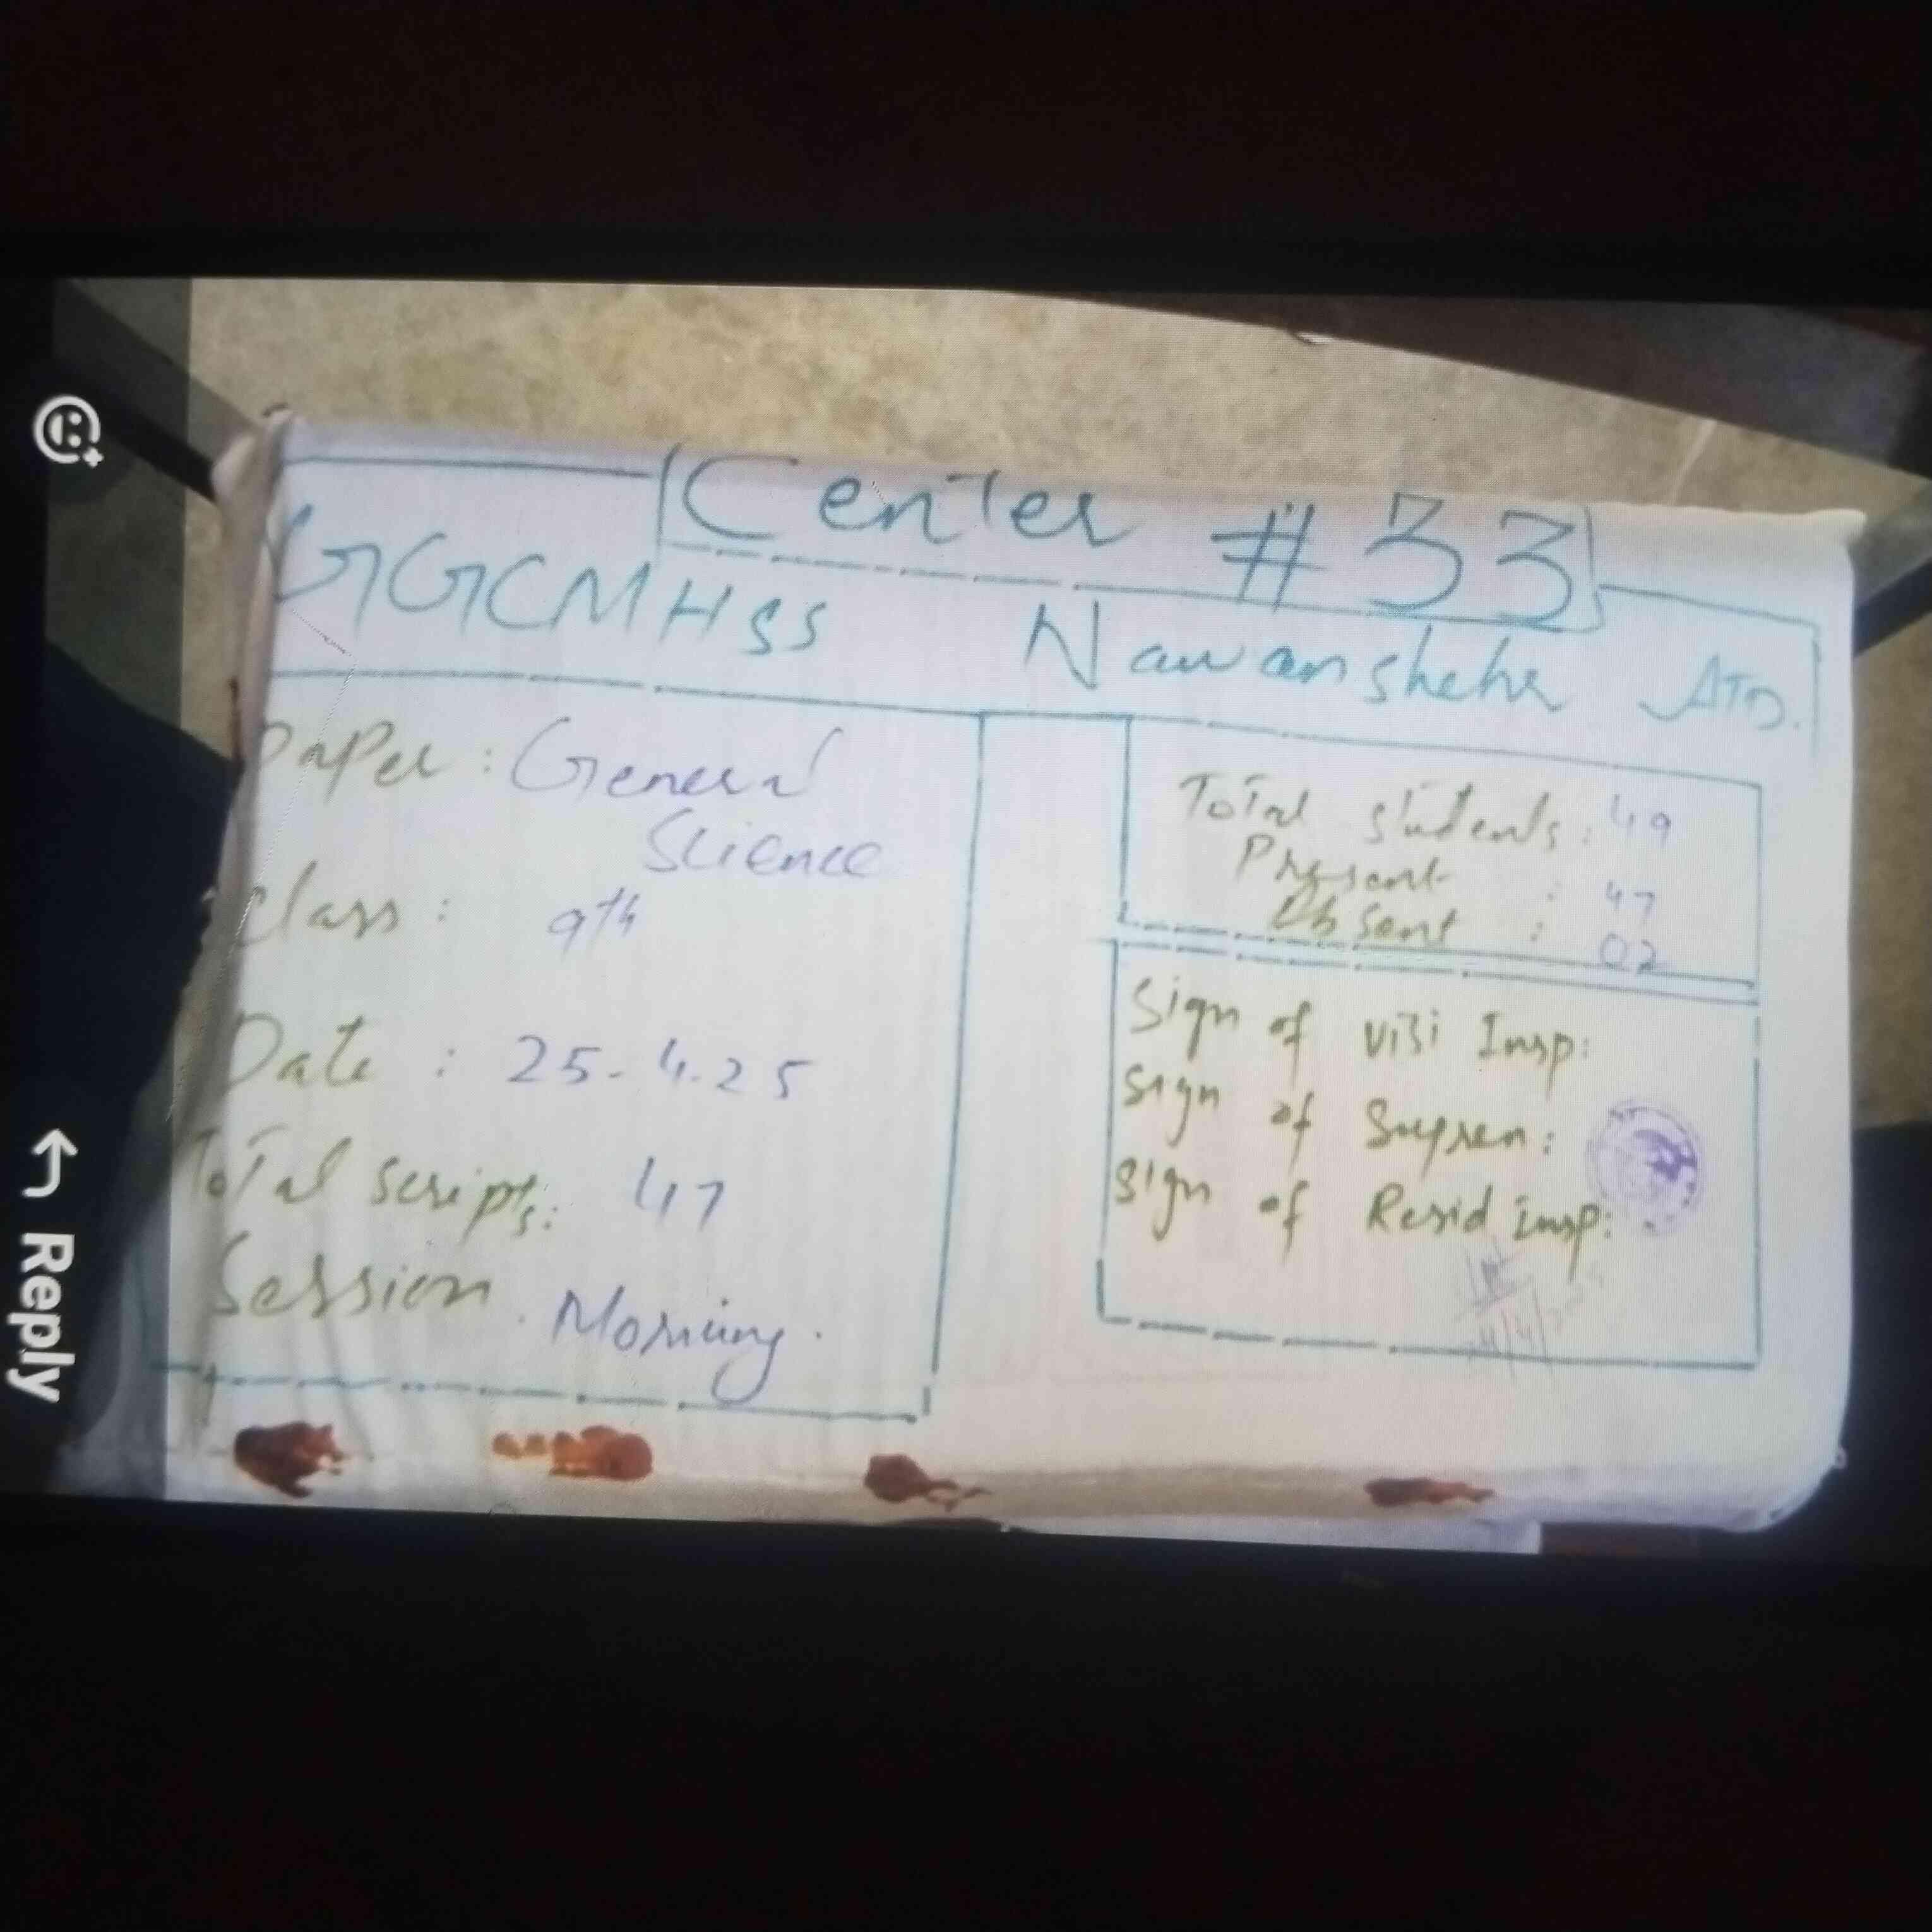 Center # 33
GGCMHSS Nawansheher ATD.
Paper : General
Science
Class : 9th
Date : 25-4-25
Total scripts: 47
Session. Morning.
Total students: 49
Present : 47
Absent : 02
Sign of Visi Insp:
Sign of Supren:
Sign of Resid insp:
Reply